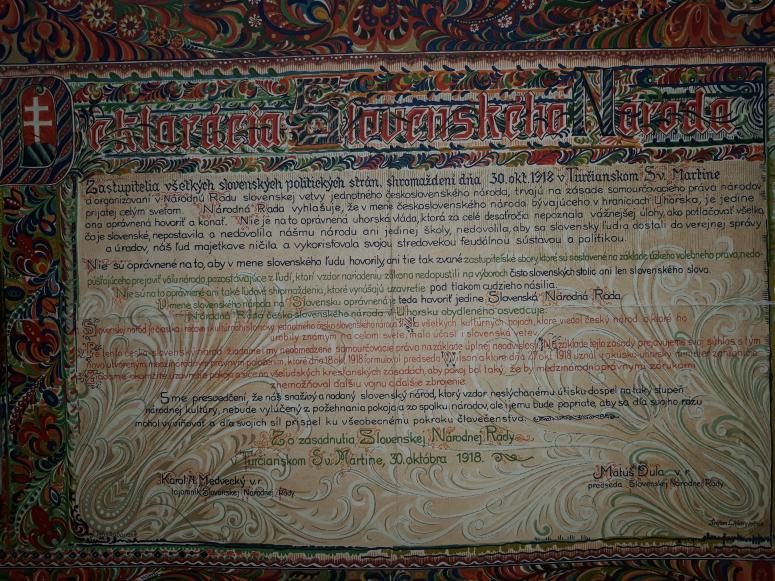 Deklarácia Slovenského Národa
Zastupitelia všetkých slovenských politických strán, shromaždení dňa 30. okt. 1918 v Turčianskom Sv. Martine
a organizovaní v Národnú Radu slovenskej vetvy jednotného československého národa, trvajú na zásade samourčovacieho práva národov
prijatej celým svetom. Národná Rada vyhlašuje, že v mene československého národa bývajúceho v hraniciach Uhorska, je jedine
ona oprávnená hovoriť a konať. Nie je na to oprávnená uhorská vláda, ktorá za celé desaťročia nepoznala vážnejšej úlohy, ako potlačovať všetko,
čo je slovenské, nepostavila a nedovolila nášmu národu ani jedinej školy, nedovolila, aby sa slovenskí ľudia dostali do verejnej správy
a úradov, náš ľud majetkove ničila a vykorisťovala svojou stredovekou feudálnou sústavou a politikou.
Nie sú oprávnené na to, aby v mene slovenského ľudu hovorily, ani tie tak zvané zastupiteľské sbory, ktoré sú sostavené na základe úzkeho volebného práva, nedo-
púšťajúceho prejaviť vôľu národa, pozostávajúce z ľudí, ktorí vzdor nariadeniu zákona nedopustili na výboroch čisto slovenských stolic ani len slovenského slova.
Nie sú na to oprávnené ani také ľudové shromaždenia, ktoré vynášajú uzavretie pod tlakom cudzieho násilia.
V mene slovenského národa na Slovensku oprávnená je teda hovoriť jedine Slovenská Národná Rada.
Národná Rada česko-slovenského národa v Uhorsku obydleného osvedčuje:
Slovenský národ je čiastka i rečove i kultúrno-historicky jednotného česko-slovenského národa. Na všetkých kultúrnych bojoch, ktoré viedol český národ a ktoré ho
urobily známym na celom svete, mala účasť i slovenská vetev.
Pre tento česko-slovenský národ žiadame i my neobmedzené samourčovacie právo na základe úplnej neodvislosti. Na základe tejto zásady prejavujeme svoj súhlas s tým
novoutvoreným medzinárodným právnym položením, ktoré dňa 18. okt. 1918 formuloval predseda Wilson a ktoré dňa 27. okt. 1918 uznal rakúsko-uhorský minister zahraničia.
Žiadame okamžité uzavretie pokoja a síce na všeľudských kresťanských zásadách, aby pokoj bol taký, že by medzinárodno-právnymi zárukami
znemožňoval ďalšiu vojnu a ďalšie zbrojenie.
Sme presvedčení, že náš snaživý a nadaný slovenský národ, ktorý vzdor neslýchanému útisku dospel na taký stupeň
národnej kultúry, nebude vylúčený z požehnania pokoja a zo spolku národov, ale i jemu bude popriate, aby sa dľa svojho rázu
mohol vyvinovať a dľa svojich síl prispel ku všeobecnému pokroku človečenstva.
Zo zásadnutia Slovenskej Národnej Rady
v Turčianskom Sv. Martine, 30. októbra 1918.
Karol A. Medvecký v.r.
tajomník Slovenskej Národnej Rady.
Matúš Dula v. r.
predseda Slovenskej Národnej Rady.